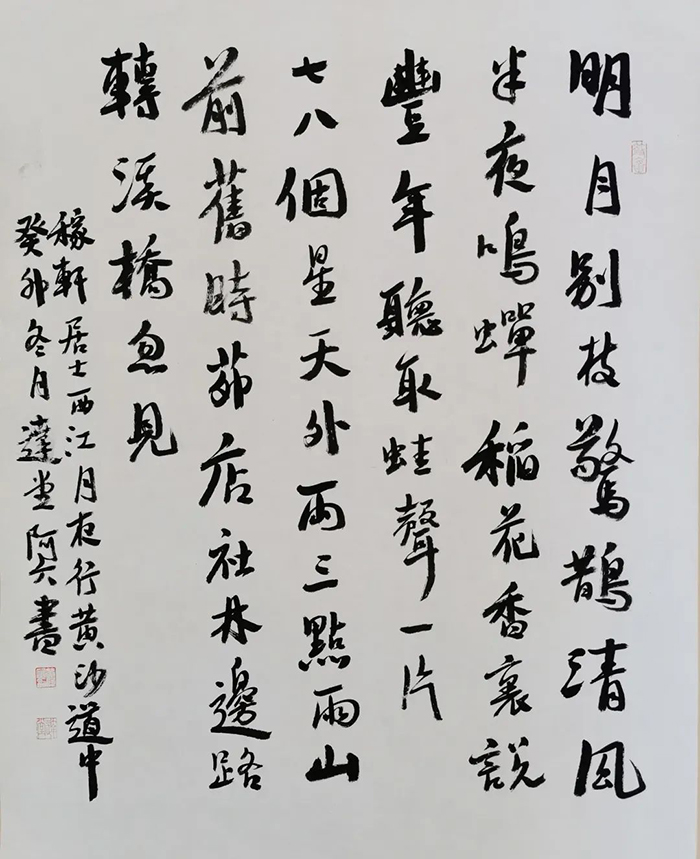 明月别枝驚鵲清風
半夜鳴蟬稻花香裏說
豐年聽取蛙聲一片
七八個星天外兩三點雨山
前舊時茆店社林邊路
轉溪橋忽見
稼軒居士西江月夜行黄沙道中
癸卯冬月達堂阿六書